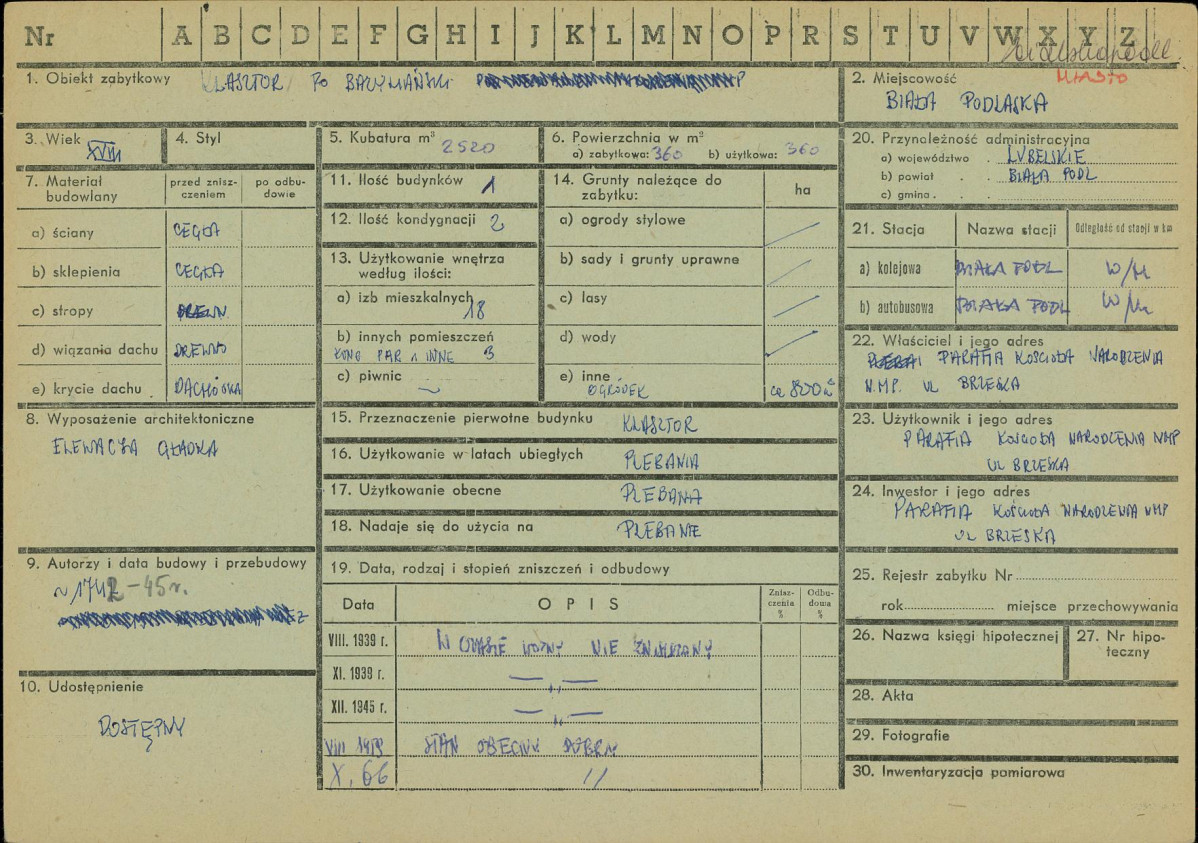 Nr A B C D E F G H I J K L M N O P R S T U V W X Y Z
1. Obiekt zabytkowy KLASZTOR PO BAZYLIAŃSKI
2. Miejscowość MIASTO
BIAŁA PODLASKA
3. Wiek XVIII
4. Styl
5. Kubatura m³ 2520
6. Powierzchnia w m²
a) zabytkowa: 360 b) użytkowa: 360
7. Materiał budowlany
przed zniszczeniem
po odbudowie
a) ściany CEGŁA
b) sklepienia CEGŁA
c) stropy DREWN
d) wiązania dachu DREWNO
e) krycie dachu DACHÓWKA
8. Wyposażenie architektoniczne
ELEWACJA GŁADKA
9. Autorzy i data budowy i przebudowy
~ 1742-45 r.
10. Udostępnienie
DOSTĘPNY
11. Ilość budynków 1
12. Ilość kondygnacji 2
13. Użytkowanie wnętrza
według ilości:
a) izb mieszkalnych 18
b) innych pomieszczeń
KANC PAR i INNE 3
c) piwnic —
14. Grunty należące do
zabytku:
ha
a) ogrody stylowe /
b) sady i grunty uprawne /
c) lasy /
d) wody /
e) inne
OGRÓDEK ca 800 m²
15. Przeznaczenie pierwotne budynku KLASZTOR
16. Użytkowanie w latach ubiegłych PLEBANIA
17. Użytkowanie obecne PLEBANIA
18. Nadaje się do użycia na PLEBANIE
19. Data, rodzaj i stopień zniszczeń i odbudowy
Data OPIS Zniszczenia % Odbudowa %
VIII. 1939 r. W CZASIE WOJNY NIE ZNISZCZONY
XI. 1939 r. — „ —
XII. 1945 r. — „ —
VIII 1959 STAN OBECNY DOBRY
X. 66 //
20. Przynależność administracyjna
a) województwo . LUBELSKIE
b) powiat . . BIAŁA PODL
c) gmina . .
21. Stacja Nazwa stacji Odległość od stacji w km
a) kolejowa BIAŁA PODL W/M
b) autobusowa BIAŁA PODL W/M
22. Właściciel i jego adres
PARAFIA KOŚCIOŁA NARODZENIA
N.M.P. UL BRZESKA
23. Użytkownik i jego adres
PARAFIA KOŚCIOŁA NARODZENIA NMP
UL BRZESKA
24. Inwestor i jego adres
PARAFIA KOŚCIOŁA NARODZENIA NMP
UL BRZESKA
25. Rejestr zabytku Nr
rok miejsce przechowywania
26. Nazwa księgi hipotecznej
27. Nr hipoteczny
28. Akta
29. Fotografie
30. Inwentaryzacja pomiarowa